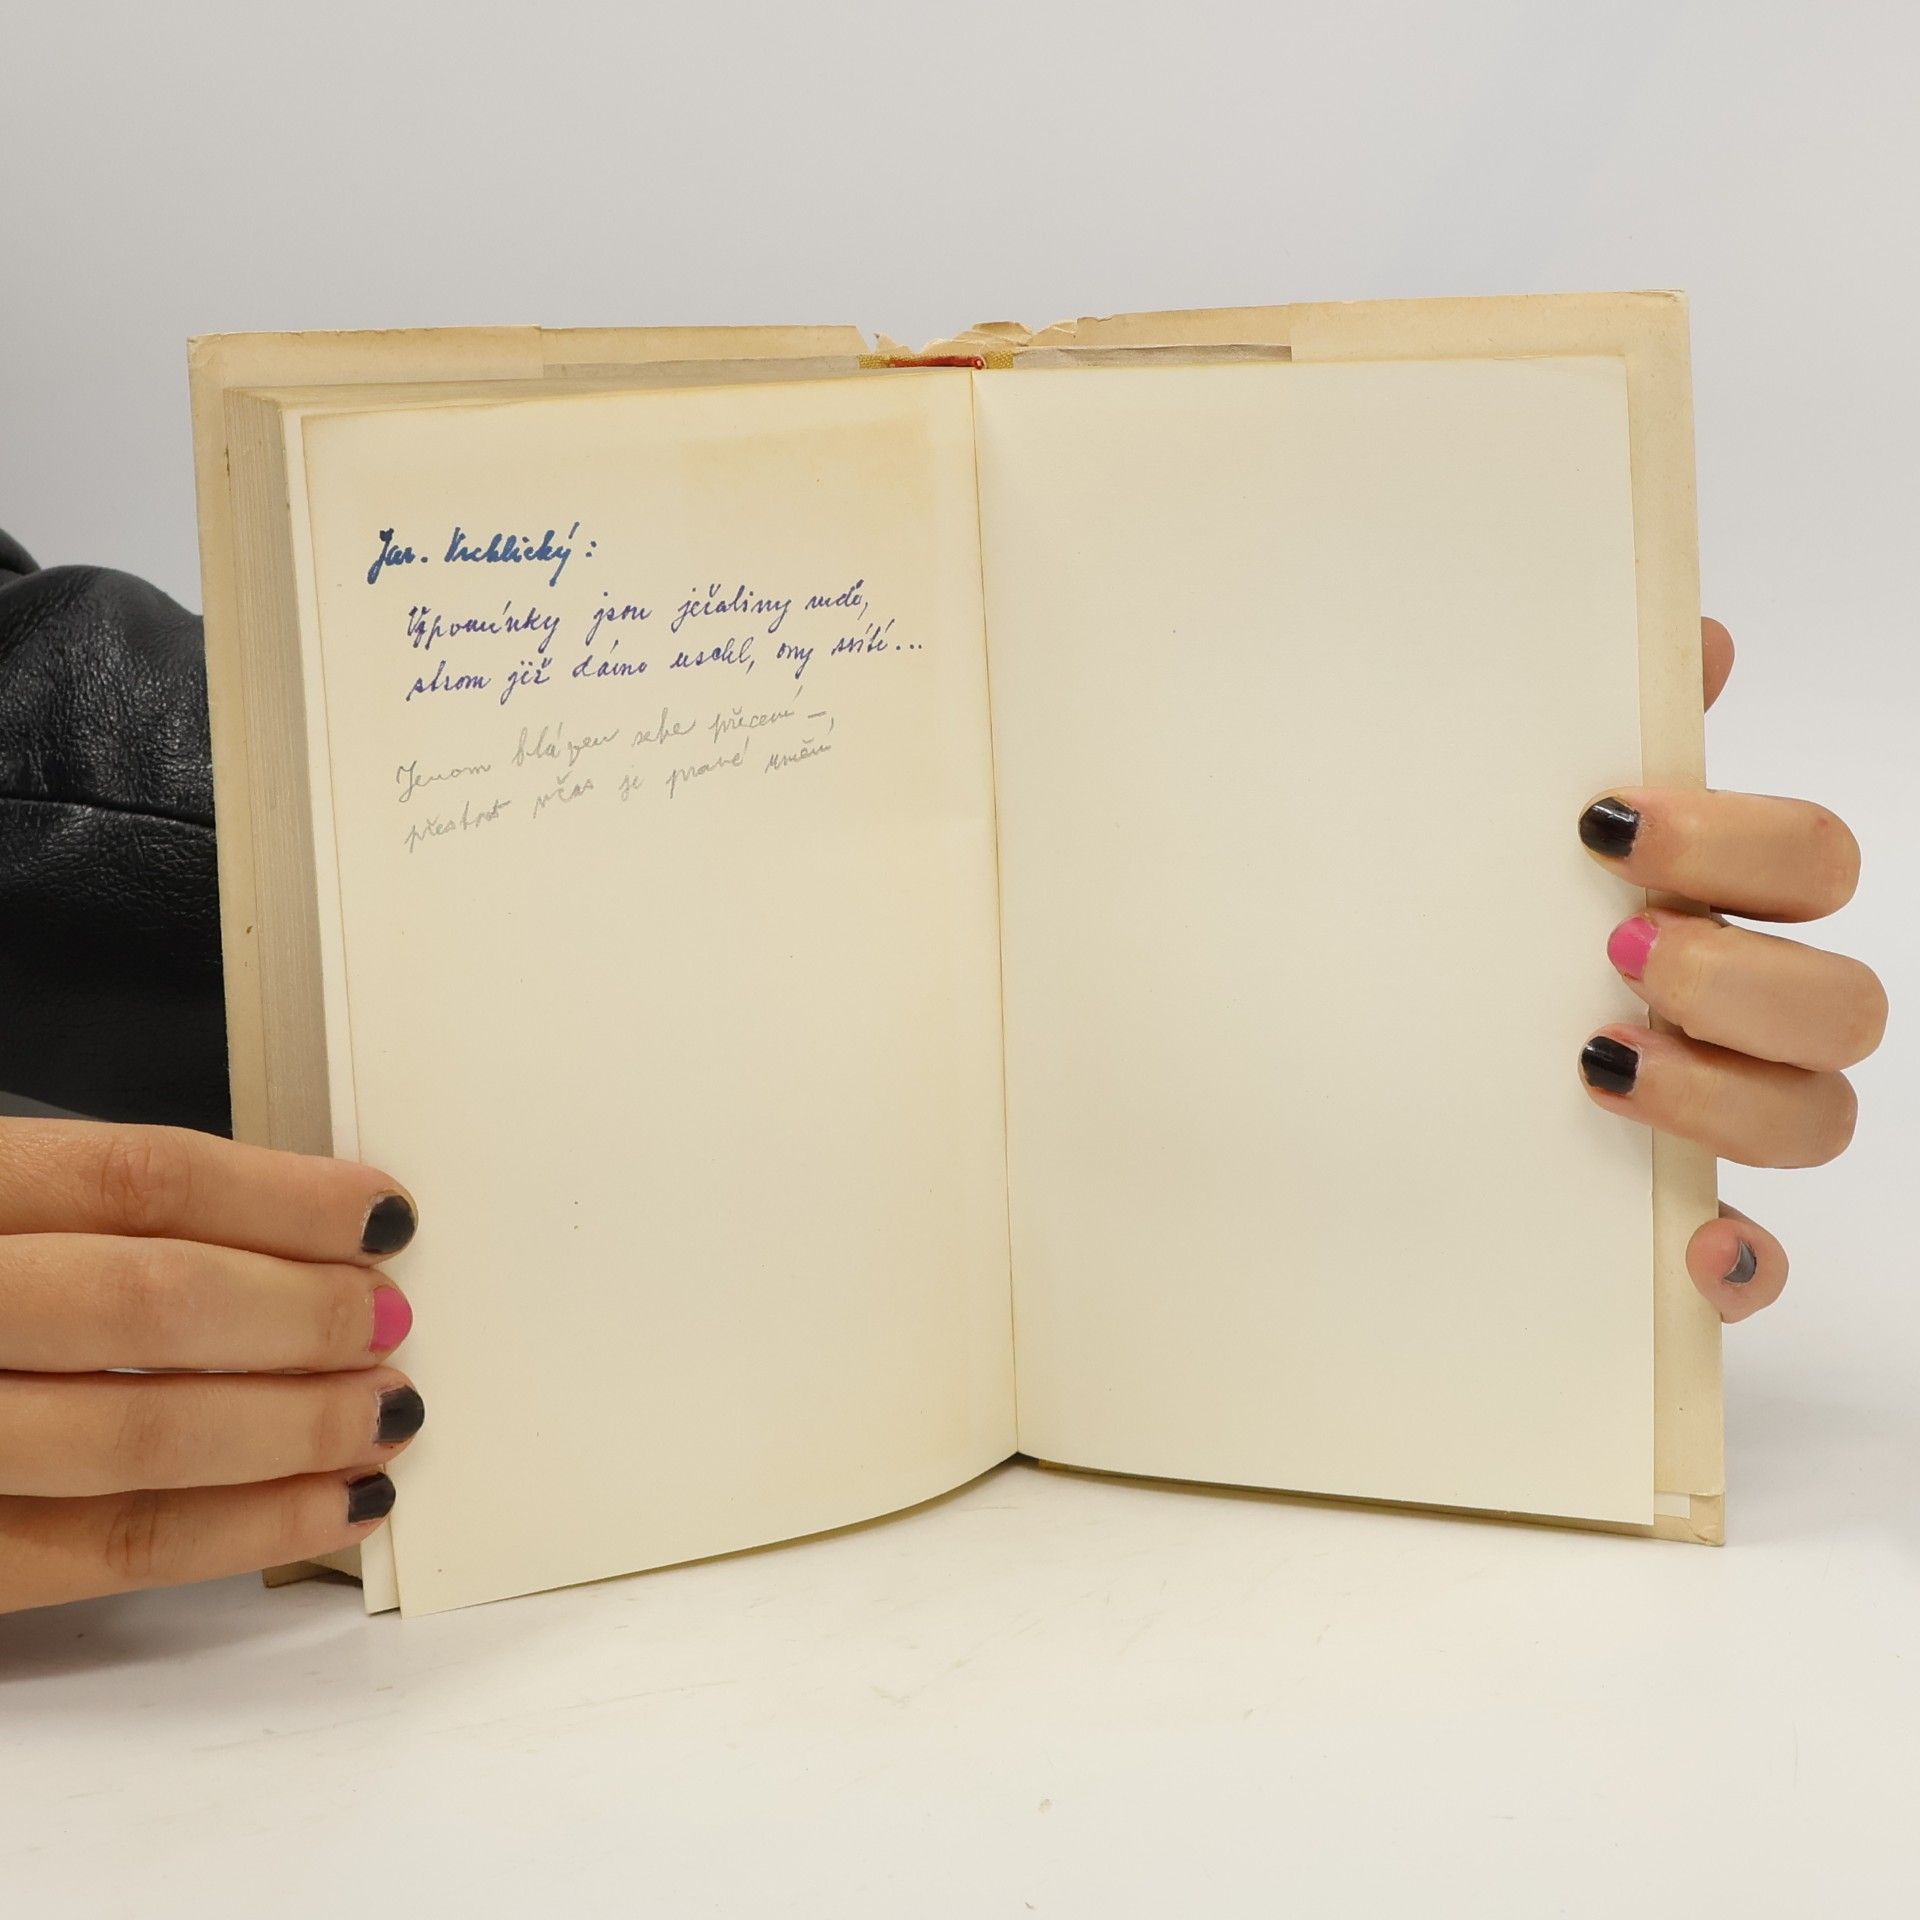 Jar. Vrchlický:
Vzpomínky jsou jeřabiny rudé,
strom již dávno uschl, ony svítí...
Jenom blázen sebe přecení –,
přestat včas je pravé umění